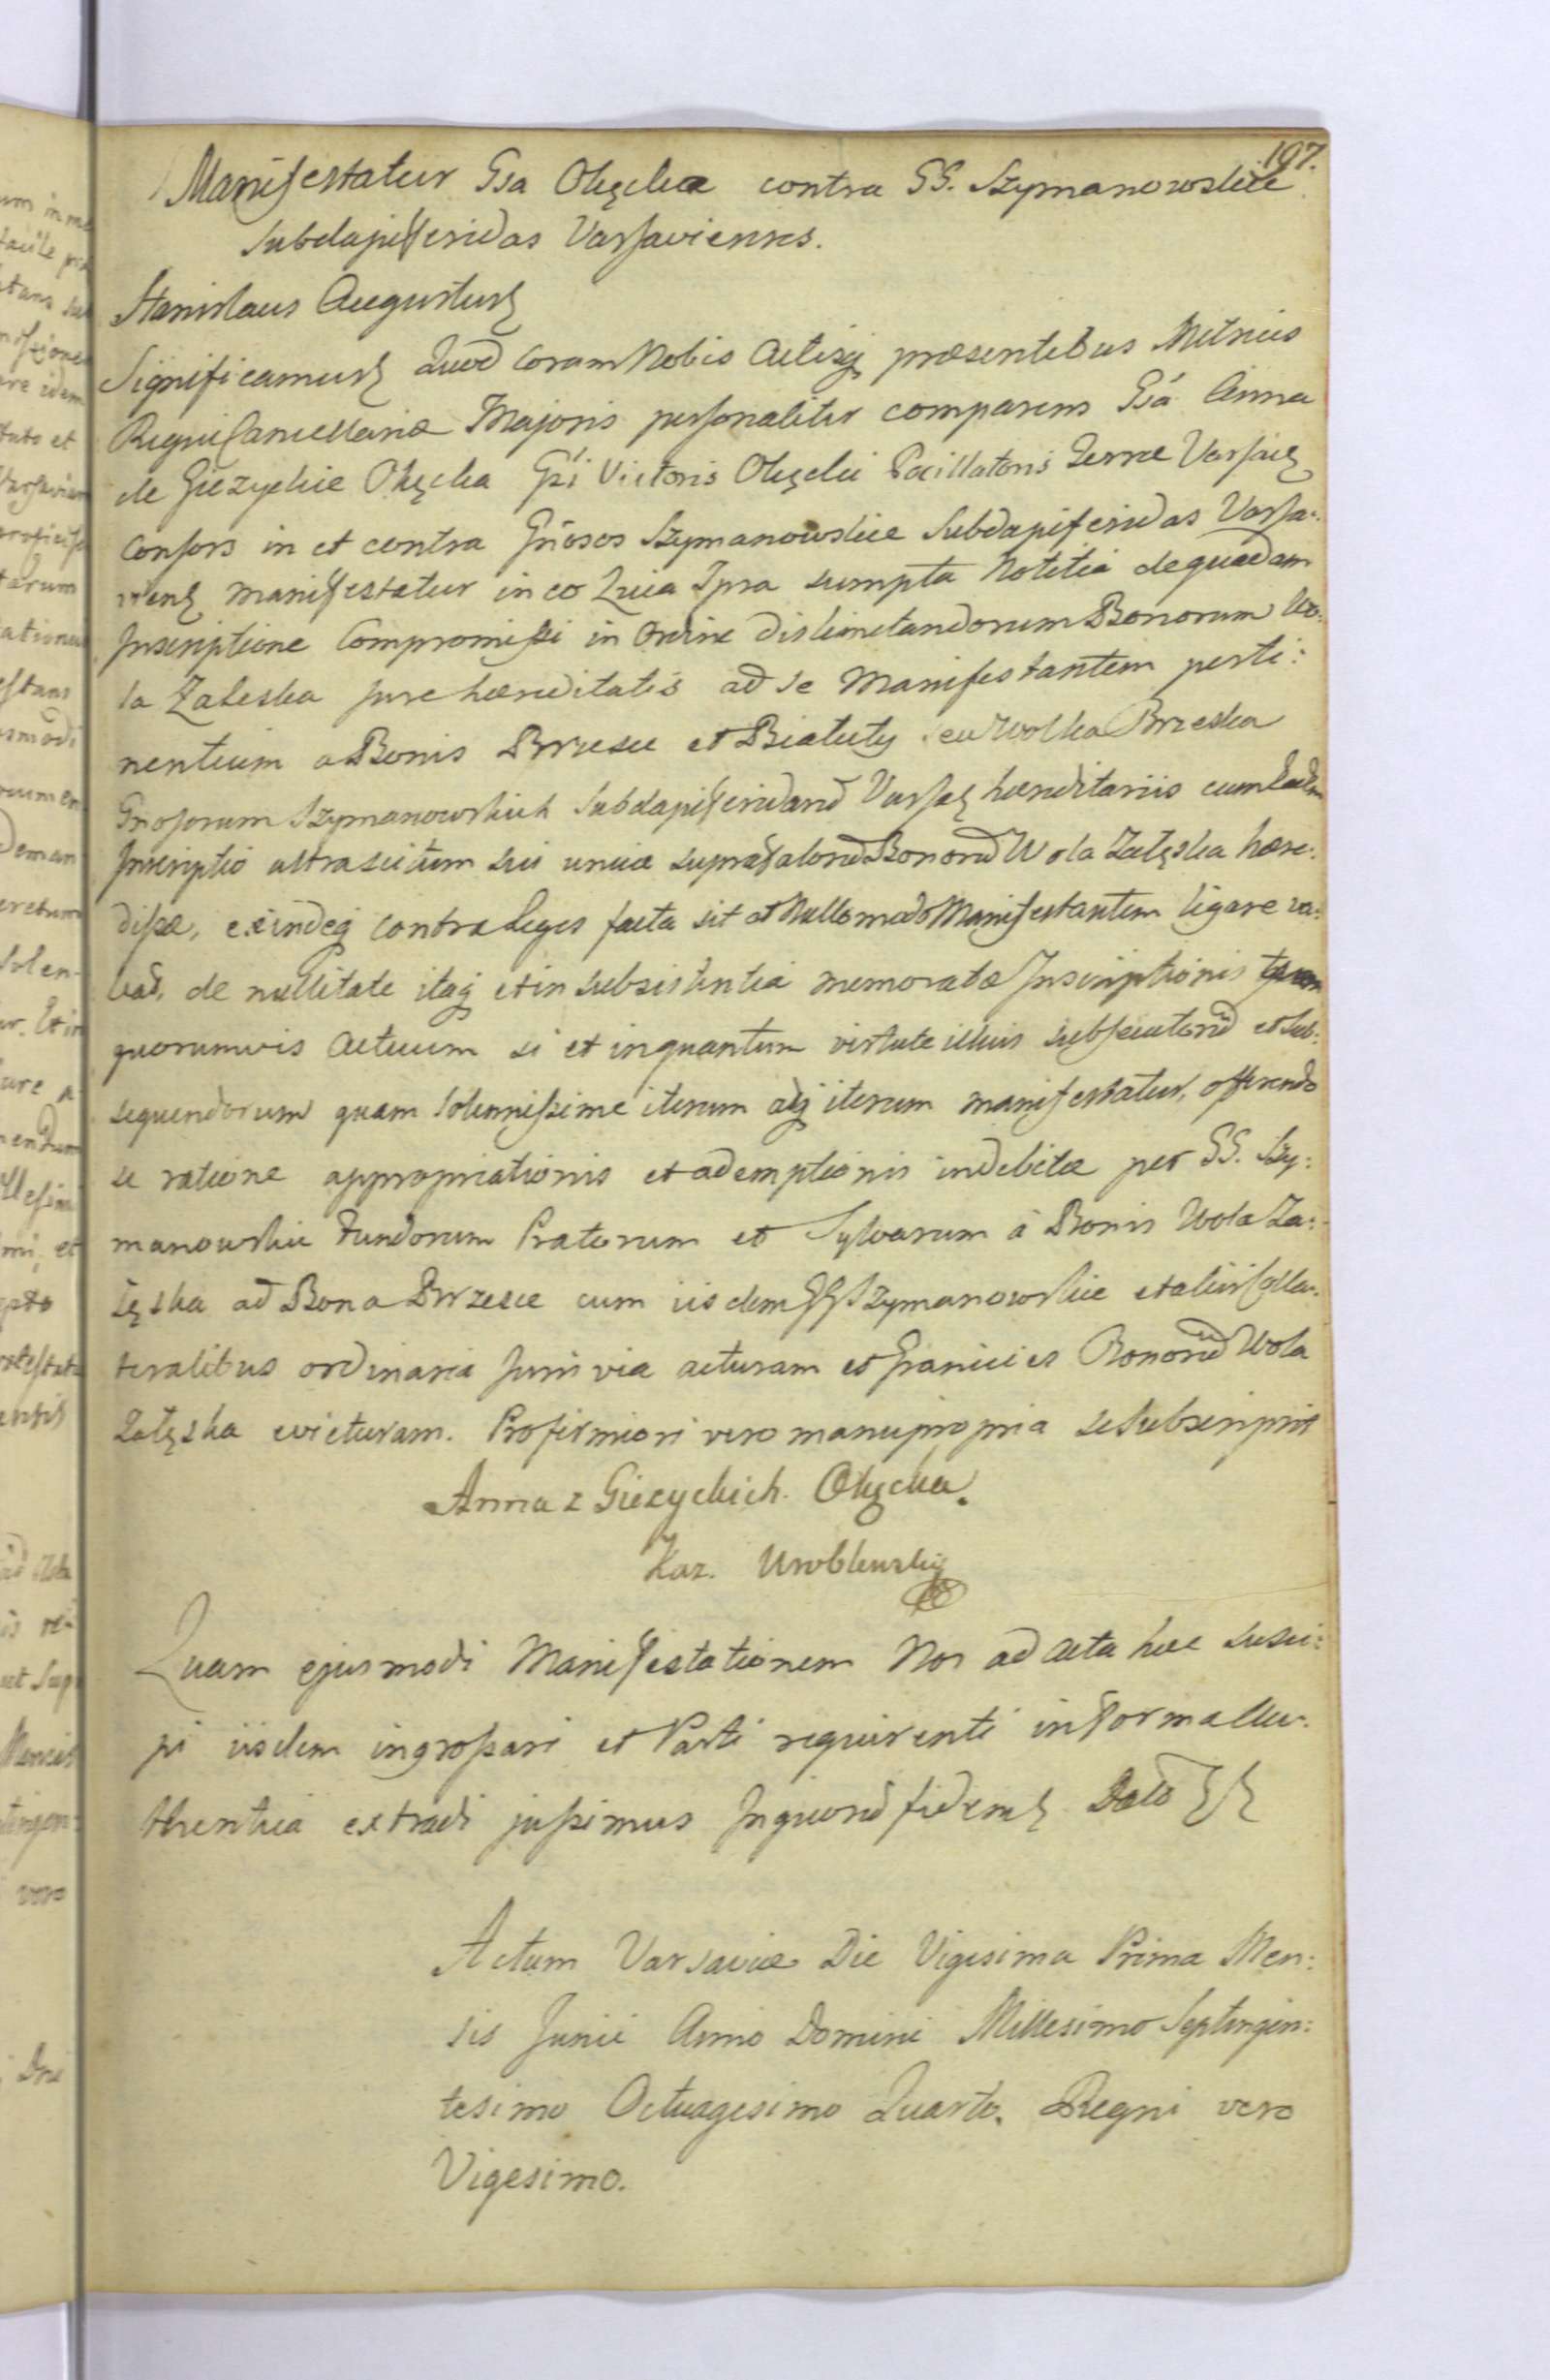 197.
Manifestatur Gsa Okęcka contra GG. Szymanowskie
Subdapiferidas Varsavienses.
Stanislaus Augustus
Significamus Quod Coram Nobis Actisq præsentibus Metrices
Regni Cancellariæ Majoris personaliter comparens Gsa Anna
de Giezyckie Okęcka Gsi Victoris Okęcki Pocillatoris Terræ Varsaę
Consors in et contra Gnosos Szymanowskie Subdapiferidas Varsa:
viens manifestatur in eo Quia Ipsa sumpta Notitia de quadam
Inscriptione Compromissi in Ordine dislimitandorum Bonorum Wo:
la Załeska Jure hæreditatis ad se Manifestantem perti:
nentium a Bonis Brzesce et Biatuty seu Wolka Brzeska
Gnosorum Szymanowskich Subdapiferidarū Varsaę hæreditariis cum Eadem
Inscriptio ultra scitum sui unicæ supradatorū Bonorū Wola Załęska hære:
dissæ, exindeq contra Leges facta sit et Nullo modo Manifestantem ligare va:
leat, de nullitate itaq et in subsistentia memoratæ Inscriptionis
quorumvis Actuum si et inquantum virtute illius subsecutorū et sub:
sequendorum quam solennissime iterum atq iterum manifestatur, offerendo
se ratione appropriationis et ademptionis indebitæ per GG. Szy:
manowskie Fundorum Pratorum et Sylvarum à Bonis Wola Za:
łęska ad Bona Brzesce cum iisdem GG Szymanowskie et aliis Colla:
teralibus ordinaria Juris via acturam et Granicies Bonorū Wola
Załęska evicturam. Pro firmiori vero manu propria se subscripsit
Anna z Giezyckich Okęcka.
Kaz. Wroblewski
Quam ejusmodi Manifestationem Nos ad Acta hæc susci:
pi iisdem ingrossari et Parti requirenti in forma Au:
thentica extradi jussimus In quorū fidem Dato
Actum Varsaviæ Die Vigesima Prima Men:
sis Junii Anno Domini Millesimo Septingen:
tesimo Octuagesimo Quarto. Regni vero
Vigesimo.